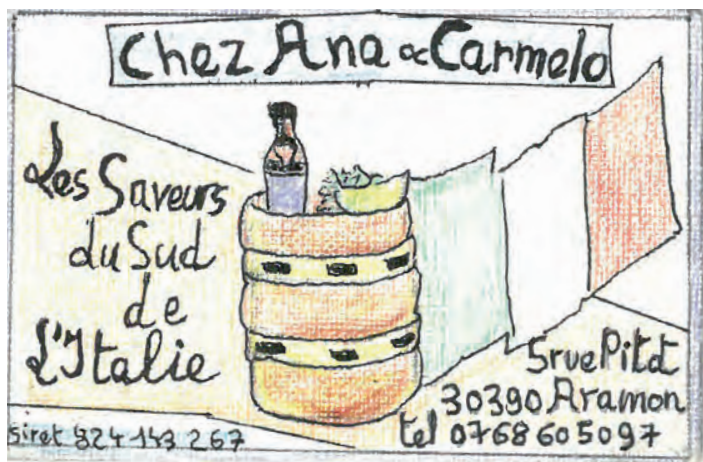 Chez Ana & Carmelo
Les Saveurs
du Sud
de
L'Italie
5 rue Pitot
30390 Aramon
tel 0768605097
siret 824 143 267